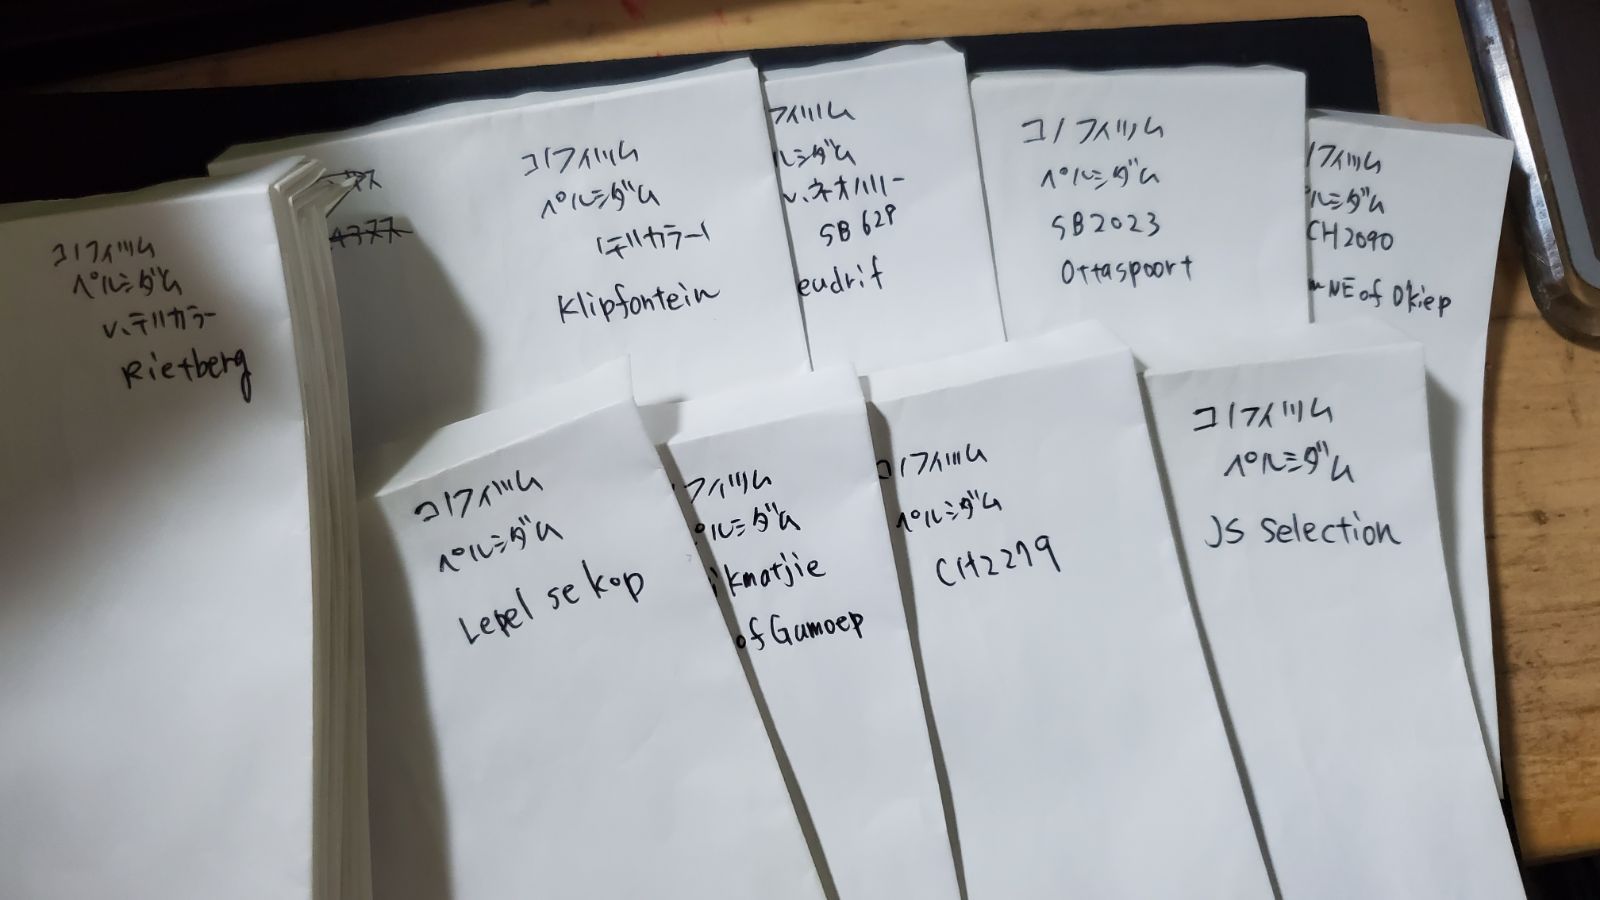 コノフィツム
ペルシダム
v.テリカラー
Rietberg
コノフィツム
ペルシダム
(テリカラー)
Klipfontein
フィツム
ルシダム
v.ネオハリー
SB 629
eudrif
コノフィツム
ペルシダム
SB2023
Ottaspoort
ノフィツム
ペルシダム
CH2090
NE of O'kiep
コノフィツム
ペルシダム
Lepelsekop
フィツム
ペルシダム
kmatjie
of Gamoep
コノフィツム
ペルシダム
CH2279
コノフィツム
ペルシダム
JS selection